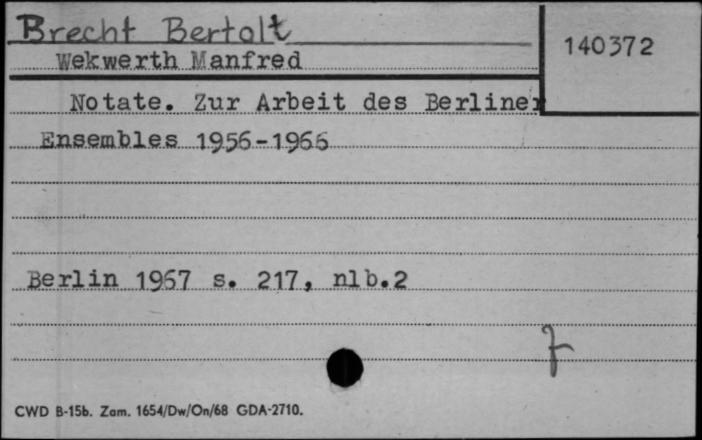 Brecht Bertolt
140372
Wekwerth Manfred
Notate. Zur Arbeit des Berliner
Ensembles 1956-1966
Berlin 1967 s. 217, nlb.2
CWD B-15b. Zam. 1654/Dw/On/68 GDA-2710.